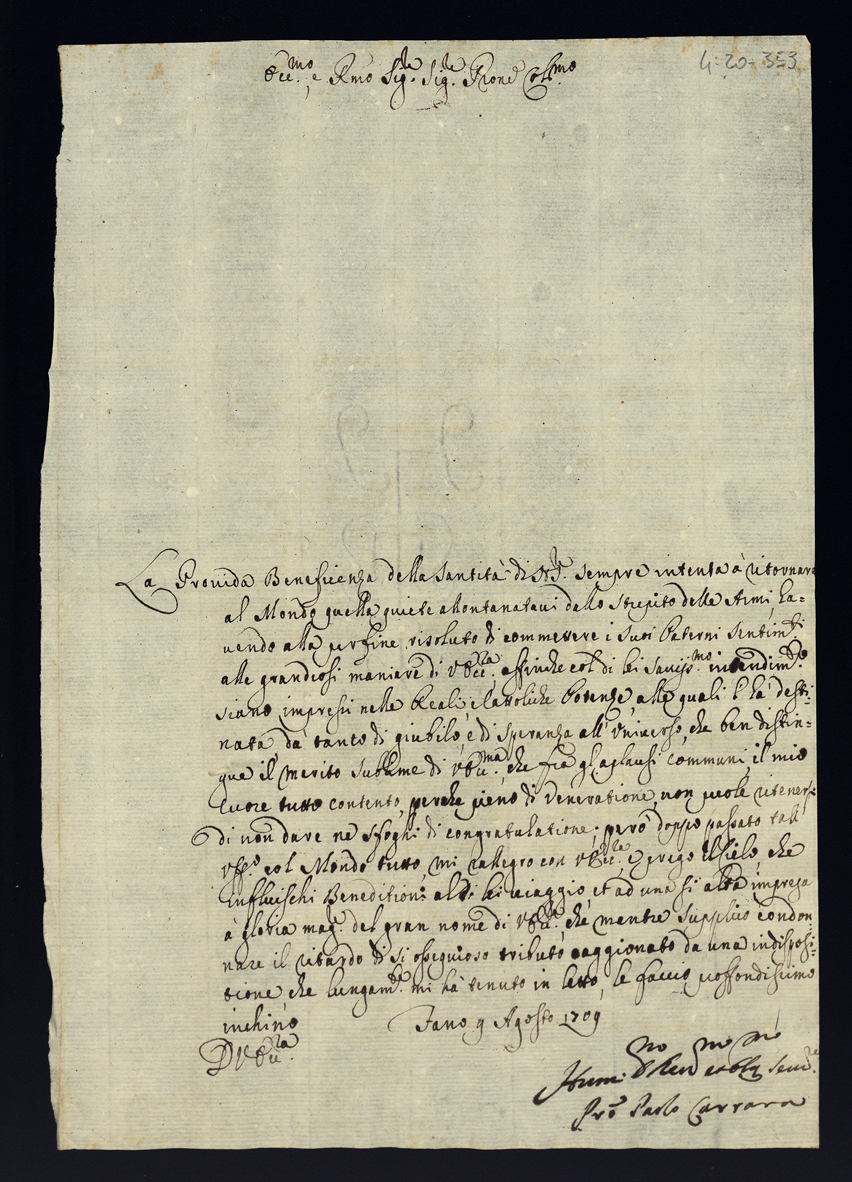 4-20-353
Ecc.mo e Rmo Sig.re Sig.re Prone Col.mo
La Prouida Beneficenza della Santità di N. S.re sempre intenta à ritornare
al Mondo quella quiete allontanataui dallo strepito delle Armi, ha=
uendo alla perfine risoluto di commettere i suoi Paterni sentim.ti
alle grandiosi maniare di V. Ecc.za, affinche col di lei sauiss.mo intendim.to
siano impressi nelle Reali, e Cattoliche Potenze, alle quali l'hà desti=
nata, dà tanto di giubilo, e di speranza all' Vniuerso, che ben distin=
gue il merito sublime di V. Ecc.ma, che frà gl'aplausi communi, il mio
Cuore tutto contento, perche pieno di Veneratione, non puole ritenersi
di non dare ne sfoghi di congratulatione; però doppo passato tal'
Vff.o col Mondo tutto, mi rallegro con V. Ecc.za, e prego il Cielo, che
influischi Beneditioni al di lei uiaggio, et ad una sì alta impresa
à gloria mag.re del gran nome di V. Ecc.za, che mentre supplico condon=
nare il ritardo di sì ossequioso tributo caggionato da una indisposi=
tione, che lungam.te mi hà tenuto in letto, le faccio proffondissimo
inchino Fano 9 Agosto 1709
D V. Ecc.za
Hum.mo Deu.mo et Obl.mo Seru.re
Paolo Carrara